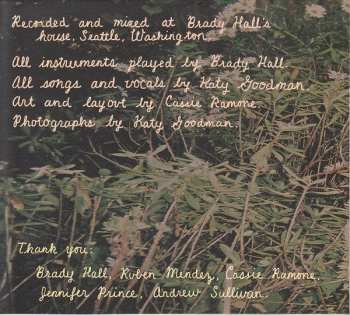 Recorded and mixed at Brady Hall's
house, Seattle, Washington.
All instruments played by Brady Hall.
All songs and vocals by Katy Goodman.
Art and layout by Cassie Ramone.
Photographs by Katy Goodman.
Thank you:
Brady Hall, Ruben Mendez, Cassie Ramone,
Jennifer Prince, Andrew Sullivan.